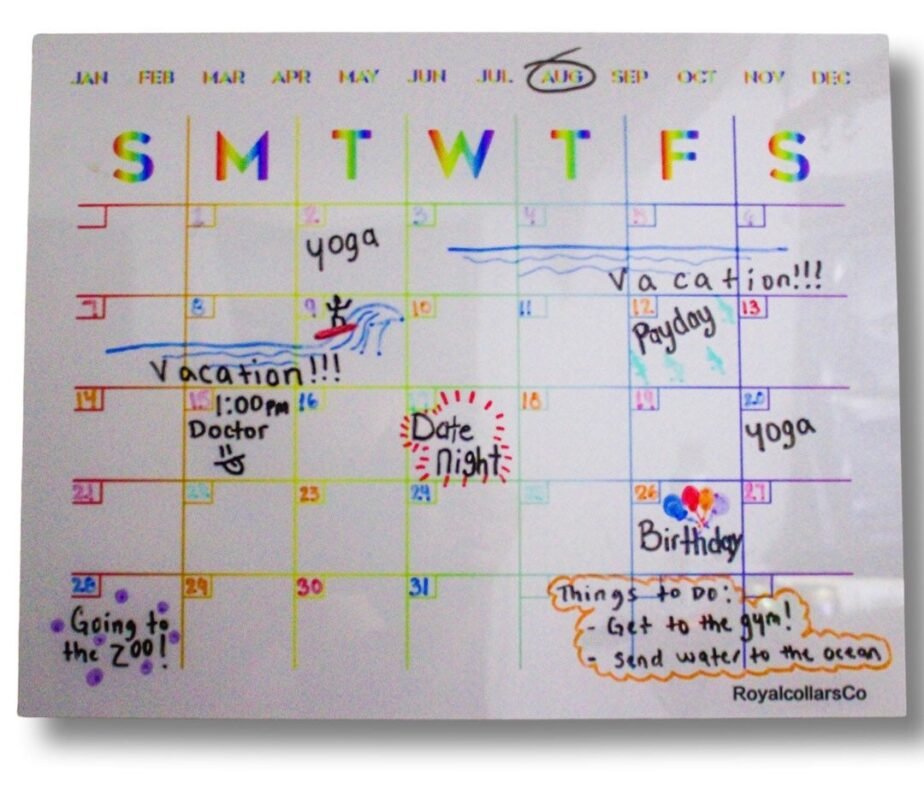 JAN FEB MAR APR MAY JUN JUL AUG SEP OCT NOV DEC
S M T W T F S
1 2 3 4 5 6
yoga
Vacation!!!
7 8 9 10 11 12 13
Payday
Vacation!!!
14 15 16 17 18 19 20
1:00pm
Doctor
Date
night
yoga
21 22 23 24 25 26 27
Birthday
28 29 30 31
Going to
the zoo!
Things to Do:
- Get to the gym!
- Send water to the ocean
RoyalcollarsCo